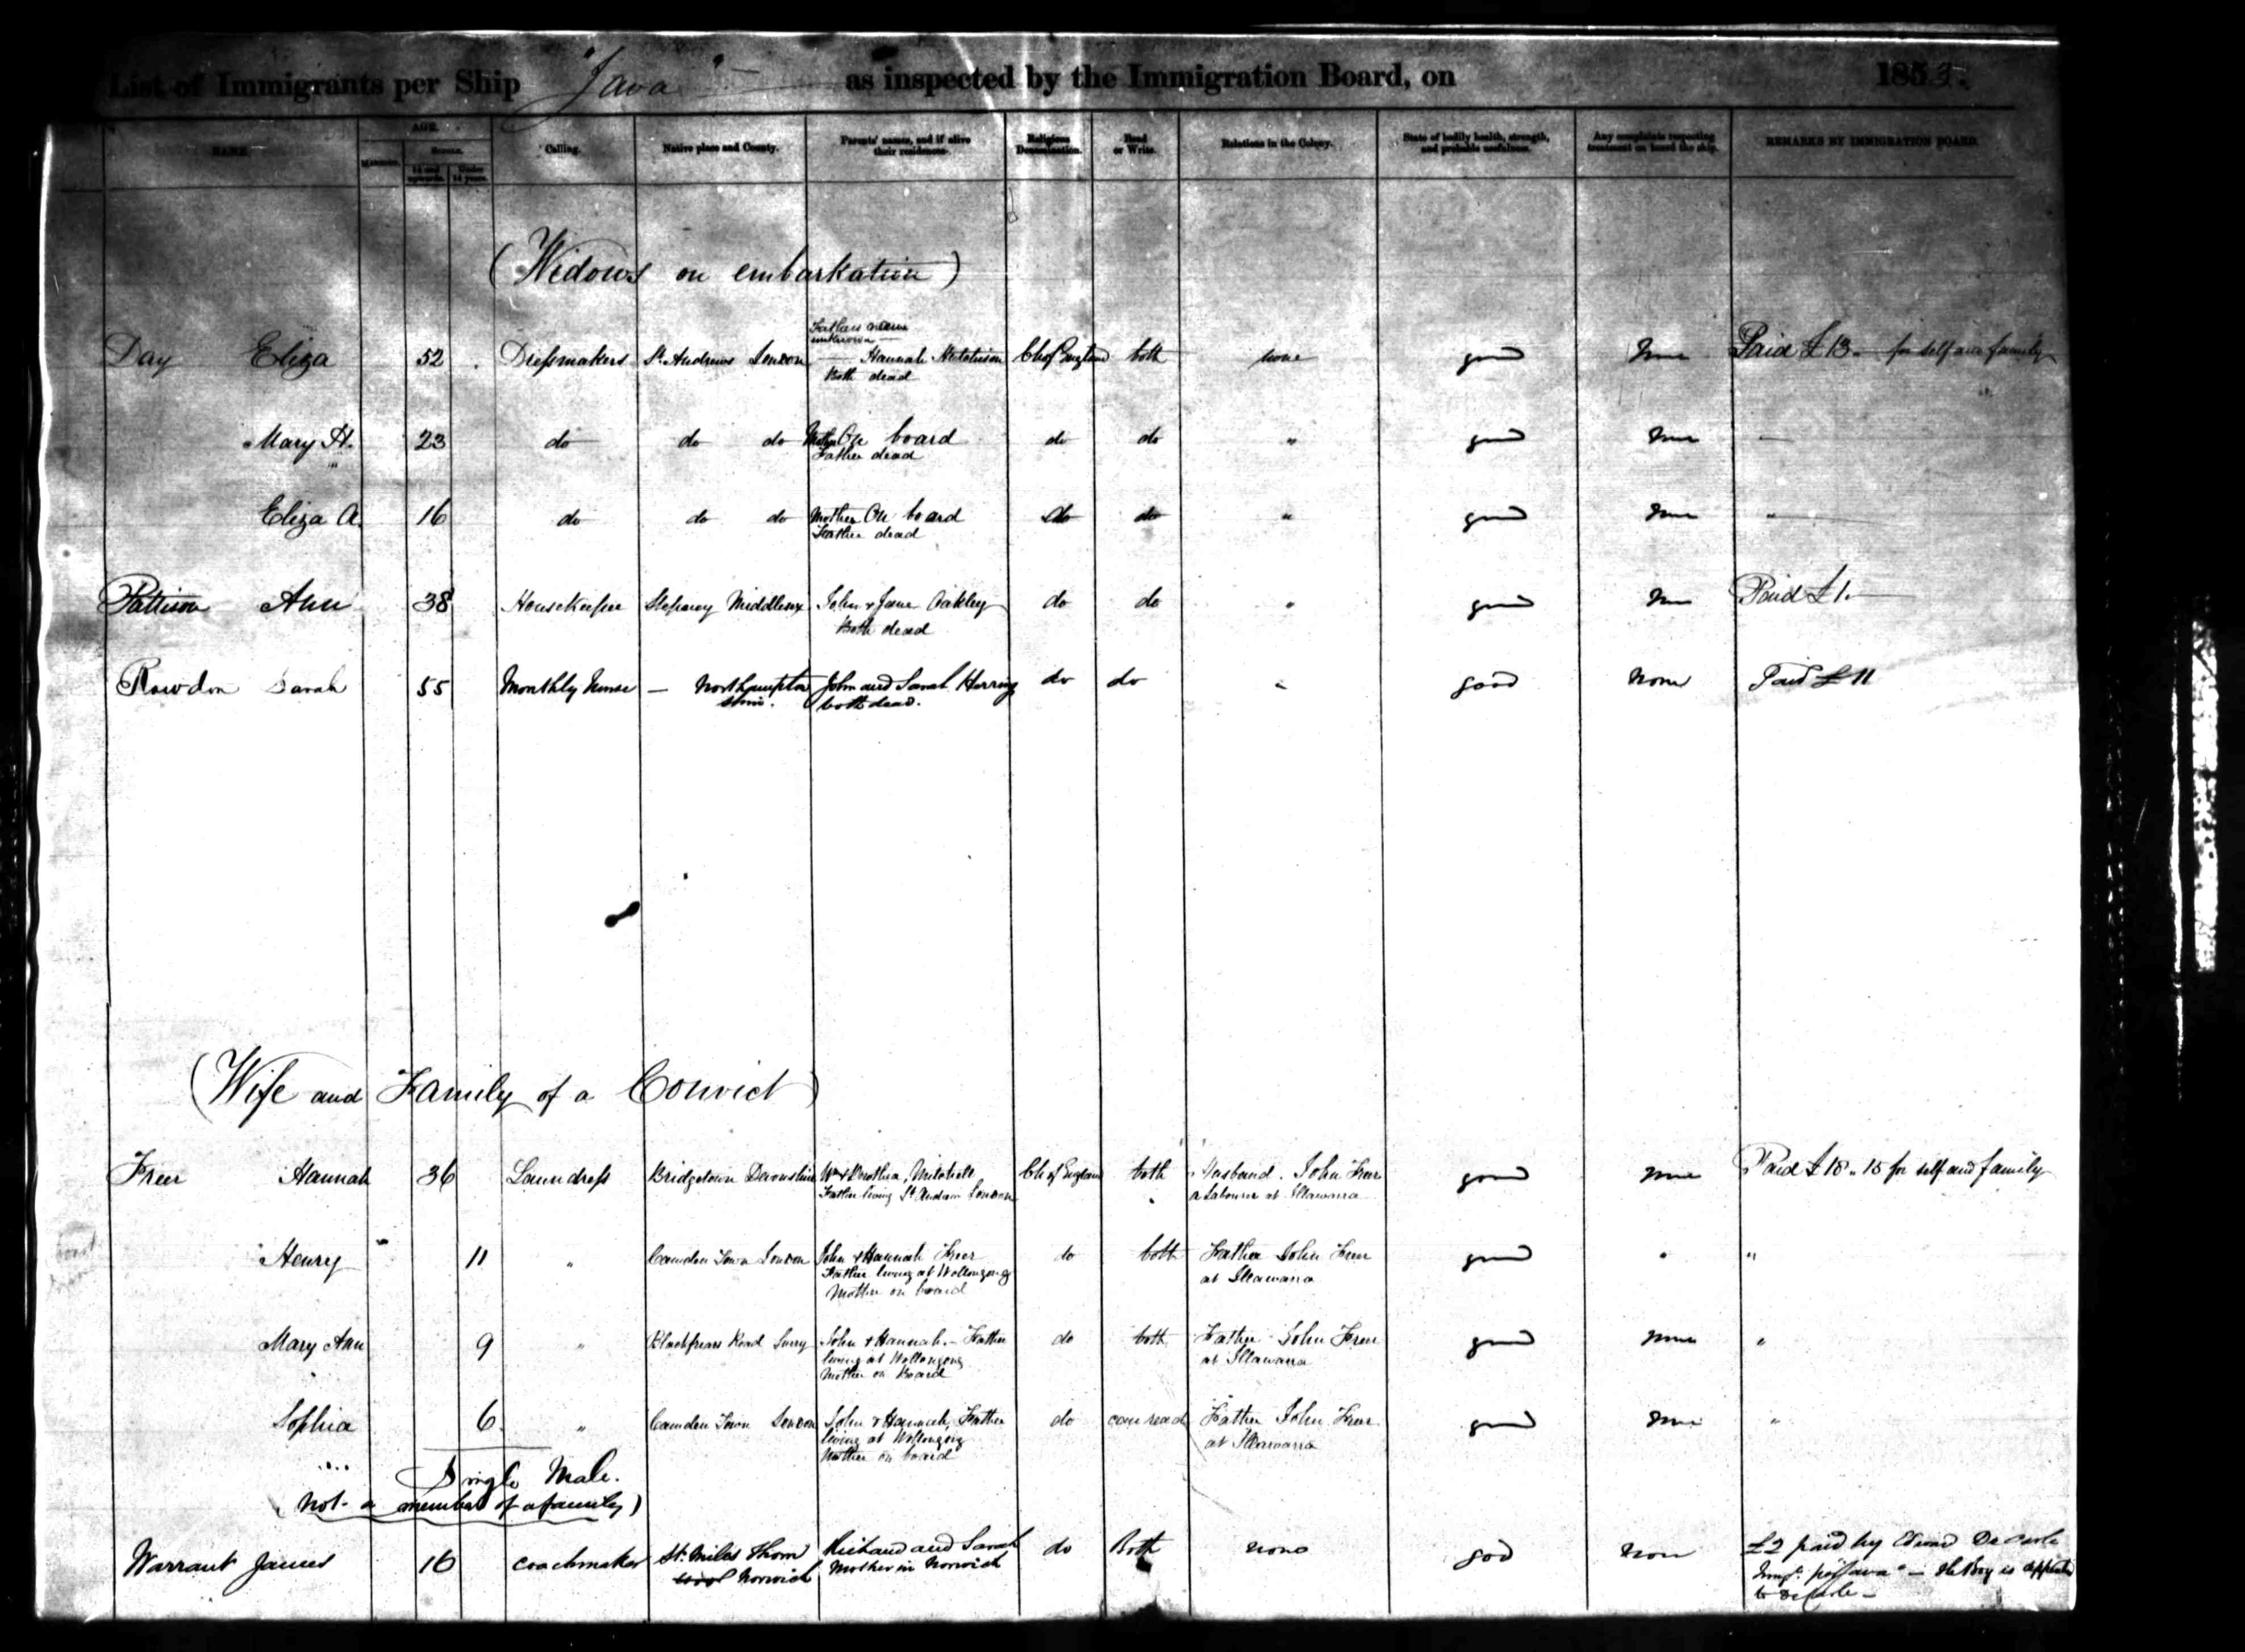 List of Immigrants per Ship "Java" as inspected by the Immigration Board, on 1853.
NAME. AGE. Calling. Native place and County. Parents' names, and if alive their residence. Religious Denomination. Read or Write. Relations in the Colony. State of bodily health, strength, and probable usefulness. Any complaints respecting treatment on board the ship. REMARKS BY IMMIGRATION BOARD.
Married. 14 and upwards. Under 14 years.
(Widows on embarkation)
Fathers name
unknown
Day Eliza 52 Dressmakers St. Andrews London Hannah Ch of England both none good None Paid £13 for self and family
Both dead
Mary H. 23 do do do Mother On board do do " good None
Father dead
Eliza A. 16 do do do Mother On board do do " good None "
Father dead
Pattison Ann 38 Housekeeper Stepney Middlesex John & Jane Oakley do do " good None Paid £1.
Both dead
Rowdon Sarah 55 Monthly Nurse — Northampton John and Sarah Herring do do " good None Paid £11
shire. both dead.
(Wife and Family of a Convict)
Freer Hannah 36 Laundress Bridgetown Devonshire Wm & Dorothea Ch of England both Husband. John Freer good none Paid £15 " 15 for self and family
Father living St. London a Labourer at Illawarra
Henry 11 " Camden Town London John & Hannah Freer do both Father John Freer good " "
Father living at Wollongong at Illawarra
Mother on board
Mary Ann 9 " Blackfriars Road Surry John & Hannah - Father do both Father John Freer good none "
living at Wollongong at Illawarra
Mother on Board
Sophia 6 " Camden Town London John & Hannah Father do can read Father John Freer good None "
living at Wollongong at Illawarra
Mother on board
Single Male.
(Not a member of a family)
Warrant James 16 coachmaker St. Miles Richard and Sarah do Both none good None £2 paid by Edward De Carle
Norwich Mother in Norwich "Java" - the Boy is
to De Carle -